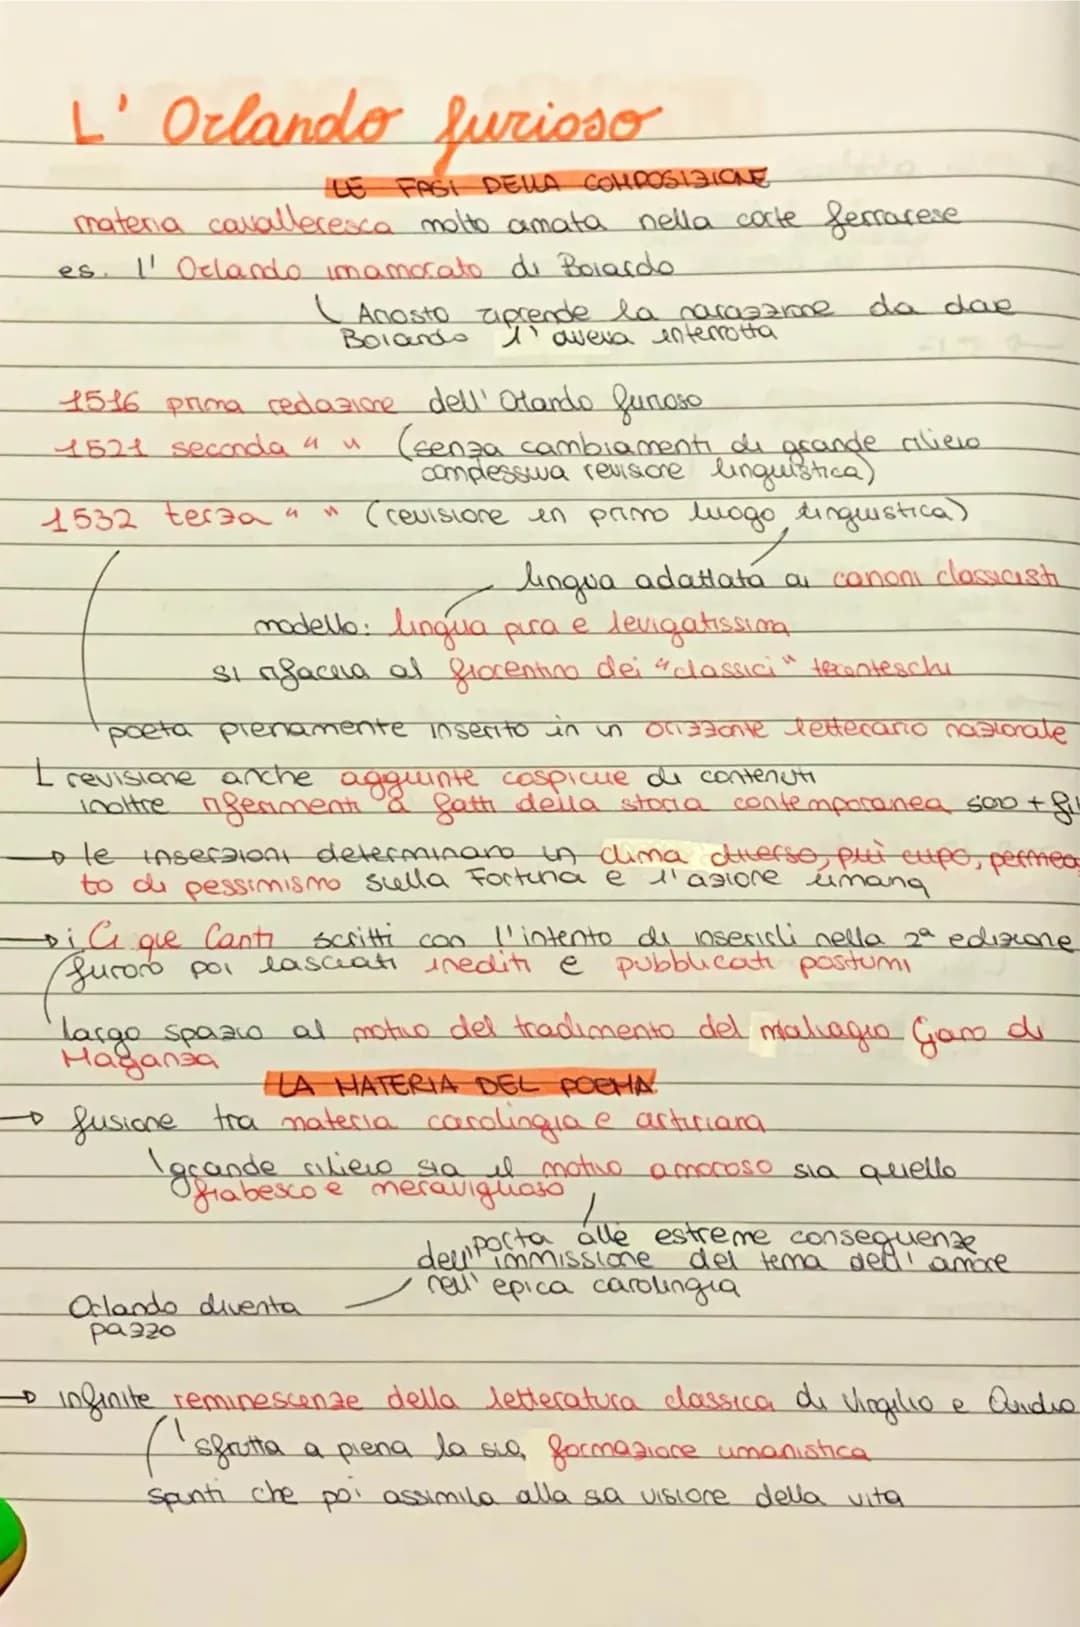 L' Orlando furioso
LE FASI DELLA COMPOSIZIONE
materia cavalleresca molto amata nella corte ferrarese
es. l' Orlando innamorato di Boiardo
Ariosto riprende la narrazione da dove
Boiardo l'aveva interrotta
1516 prima redazione dell'Orlando furioso
1521 seconda " " (senza cambiamenti di grande rilievo
complessiva revisione linguistica)
1532 terza " " (revisione in primo luogo linguistica)
lingua adattata ai canoni classicisti
modello: lingua pura e levigatissima
si rifaceva al fiorentino dei "classici" trecenteschi
poeta pienamente inserito in un orizzonte letterario nazionale
revisione anche aggiunte cospicue di contenuti
inoltre riferimenti a fatti della storia contemporanea
→ le inserzioni determinano un clima diverso, più cupo, permea
to di pessimismo sulla Fortuna e l'azione umana
→ i Cinque Canti scritti con l'intento di inserirli nella 2ª edizione
furono poi lasciati inediti e pubblicati postumi
largo spazio al motivo del tradimento del malvagio Gano di
Maganza
LA MATERIA DEL POEMA
→ fusione tra materia carolingia e arturiana
grande rilievo sia il motivo amoroso sia quello
fiabesco e meraviglioso
porta alle estreme conseguenze
dell'immissione del tema dell'amore
nell'epica carolingia
Orlando diventa
pazzo
→ infinite reminescenze della letteratura classica di Virgilio e Ovidio
sfrutta a piena la sua formazione umanistica
spunti che poi assimila alla sua visione della vita